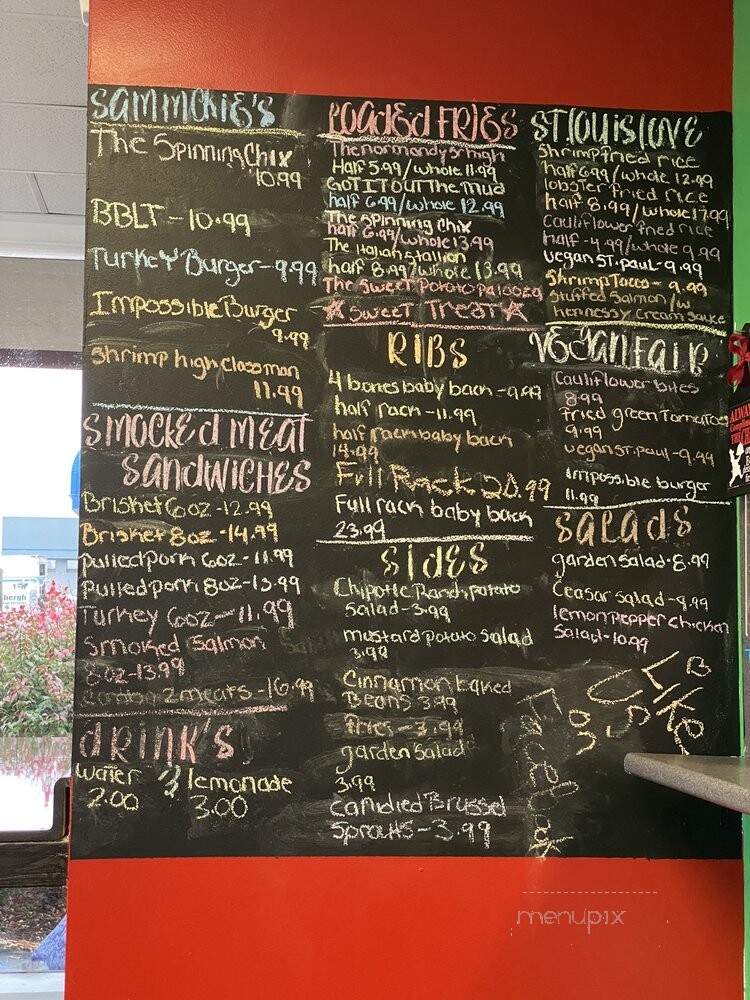 SammCkie's
The Spinning Chix
10.99
BBLT - 10.99
Turkey Burger - 9.99
Impossible Burger
9.99
Shrimp high classman
11.99
Smocked meat
Sandwiches
Brisket 6oz - 12.99
Brisket 8oz - 14.99
pulled pork 6oz - 11.99
Pulled pork 8oz - 13.99
Turkey 6oz - 11.99
Smoked Salmon
8oz - 13.99
2 meats - 16.99
dRink's
water & lemonade
2.00 3.00
Loaded FRies
The normandy st high
Half 5.99/whole 11.99
GOT IT OUT The mud
half 6.99/whole 12.99
The spinning chix
half 6.99/whole 13.99
The Italian Stallion
half 8.99/whole 13.99
The Sweet Potato palooza
☆ Sweet Treat ☆
RIBS
4 bones baby back - 9.99
half rack - 11.99
half rack baby back
14.99
Full Rack 20.99
Full rack baby back
23.99
Sides
Chipotle Ranch potato
Salad - 3.99
mustard potato salad
3.99
Cinnamon baked
Beans 3.99
fries - 3.99
garden salad
3.99
Candied Brussel
Sprouts - 3.99
ST. louis love
Shrimp fried rice
half 6.99/whole 12.99
lobster fried rice
half 8.99/whole 17.99
Cauliflower fried rice
half - 4.99/whole 9.99
vegan ST. paul - 9.99
Shrimp Tacos - 9.99
Stuffed Salmon /w
hennessy cream sauce
Vegan Fair
Cauliflower bites
8.99
Fried green Tomatoes
9.99
vegan st. paul - 9.99
impossible burger
11.99
Salads
garden salad - 8.99
Ceasar salad - 8.99
lemon pepper chicken
Salad - 10.99
Like
us
on
Facebook
menupix